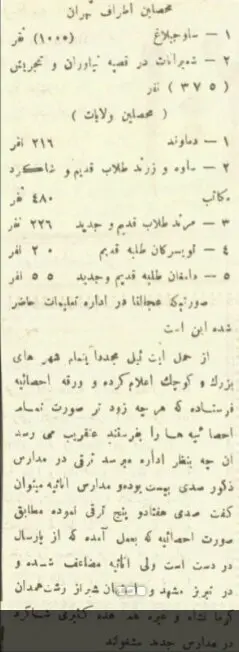 محصلین اطراف تهران
۱ — ساوجبلاغ (۱۰۰۰) نفر
۲ — شمیرانات در قصبه نیاوران و تجریش
(۳۷۵) نفر
( محصلین ولایات )
۱ — دماوند ۲۱۶ نفر
۲ — ساوه و زرند طلاب قدیم و شاگرد
مکاتب ۴۸۰ نفر
۳ — مرند طلاب قدیم و جدید ۲۲۶ نفر
۴ — تویسرکان طلبه قدیم ۲۰ نفر
۵ — دامغان طلبه قدیم وجدید ۵۵ نفر
صورتیکه عجالتا در اداره تعلیمات حاضر
شده این است
از حمل ایت ئیل مجددا بتمام شهر های
بزرك و کوچك اعلام کرده و ورقه احصائیه
فرستاده که هر چه زود تر صورت تمام
احصائیه ها را بفرستند عنقریب می رسد
آن چه بنظر اداره میرسد ترقی در مدارس
ذکور صدی بیست بوده و مدارس اناثیه میتوان
گفت صدی هفتادو پنج ترقی نموده مطابق
صورت احصائیه که بعمل آمده که از پارسال
در دست است ولی اناثیه مضاعف شده و
در تبریز مشهد و شیراز رشت همدان
کرمانشاه و غیره هم عده کثیری شاگرد
در مدارس جدید مشغولند